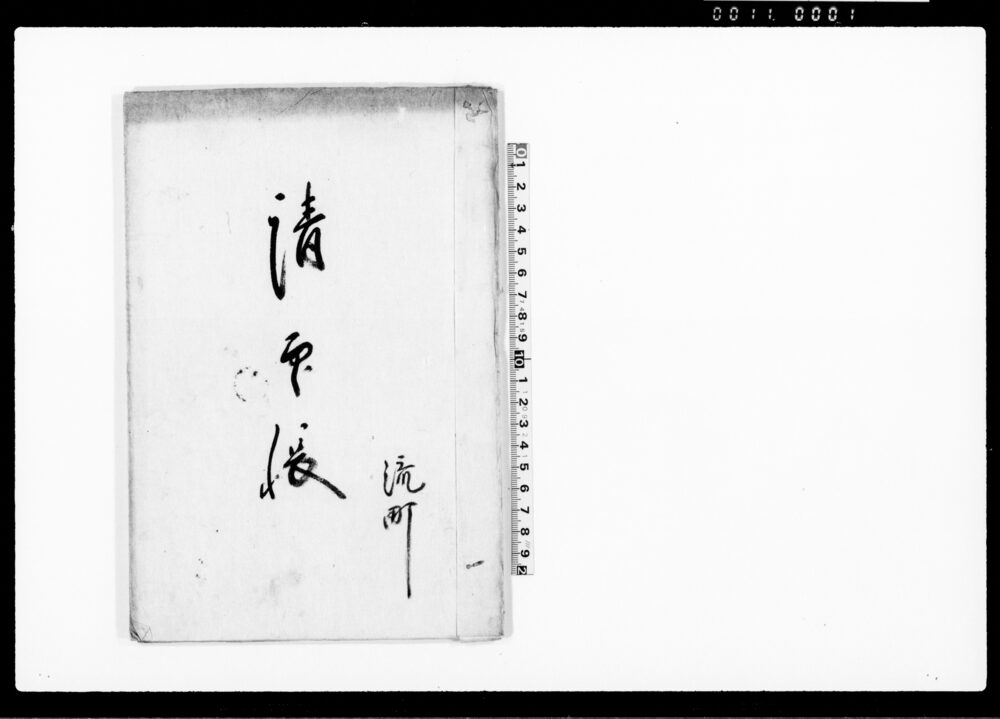 0011 0001
請印帳
流町
0 1 2 3 4 5 6 7 8 9 10 1 2 3 4 5 6 7 8 9 2